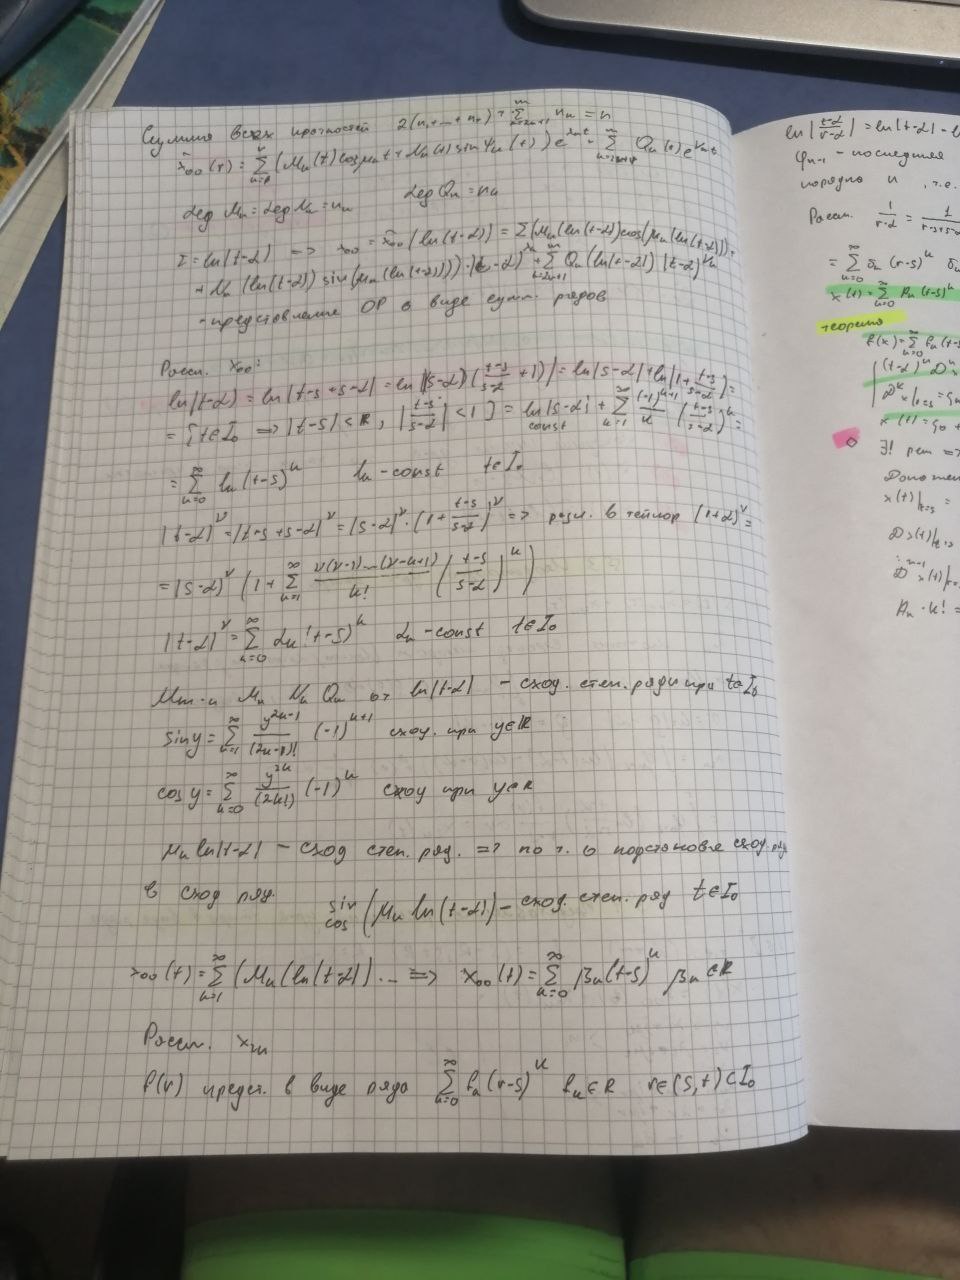 Сумма всех кратностей 2(n₁+...+nᵣ) + ∑ nₖ = n
x̃₀₀(τ) = ∑ (Mₖ(τ) cos μₖτ + Nₖ(τ) sin
deg Mₖ = deg Nₖ = nₖ deg Qₖ = nₖ
τ = ln|t-α| => x₀₀ = x̃₀₀(ln|t-α|) = ∑(Mₖ(ln|t-α|) cos(μₖ(ln|t-α|)) +
+ Nₖ(ln|t-α|) sin(μₖ(ln|t-α|)))·|t-α|^λₖ + ∑ Qₖ(ln|t-α|)|t-α|^νₖ
- представление ОР в виде сумм. рядов
Рассм. x₀₀:
ln|t-α| = ln|t-s+s-α| = ln|(s-α)((t-s)/(s-α) + 1)| = ln|s-α| + ln|1 + (t-s)/(s-α)| =
= {t∈I₀ => |t-s| < R, |(t-s)/(s-α)| < 1} = ln|s-α| + ∑_{k=1}^∞ (-1)^{k+1}/k ((t-s)/(s-α))^k =
const
= ∑_{k=0}^∞ lₖ(t-s)^k lₖ - const t∈I₀
|t-α|^ν = |t-s+s-α|^ν = |s-α|^ν · (1 + (t-s)/(s-α))^ν => разл. в тейлор (1+α)^ν =
= |s-α|^ν (1 + ∑_{k=1}^∞ ν(ν-1)...(ν-k+1)/k! ((t-s)/(s-α))^k)
|t-α|^ν = ∑_{k=0}^∞ αₖ(t-s)^k αₖ - const t∈I₀
Мн-ы Mₖ Nₖ Qₖ от ln|t-α| - сход. степ. ряды при t∈I₀
sin y = ∑_{k=1}^∞ y^{2k-1}/(2k-1)! (-1)^{k+1} сход. при y∈R
cos y = ∑_{k=0}^∞ y^{2k}/(2k!) (-1)^k сход при y∈R
μₖ ln|t-α| - сход степ. ряд. => по т. о подстановке сход. ряда
в сход ряд. sin cos (μₖ ln|t-α|) - сход. степ. ряд t∈I₀
x₀₀(t) = ∑_{k=1}^∞ (Mₖ(ln|t-α|) ... => x₀₀(t) = ∑_{k=0}^∞ βₖ(t-s)^k βₖ∈R
Рассм. xчн
f(r) предст. в виде ряда ∑_{k=0}^∞ fₖ(r-s)^k fₖ∈R r∈(s,t)⊂I₀
ln|(t-α)/(r-α)| = ln|t-α| - l
φₙ₋₁ - последняя
порядка n , т.е.
Рассм. 1/(r-α) = 1/(r-s+s-α
= ∑_{k=0}^∞ δₖ(r-s)^k δₖ
x(t) = ∑_{k=0}^∞ Aₖ(t-s)^k
теорема
f(x) = ∑_{k=0}^∞ fₖ(t-s
(t-α)^n Dⁿ
D^k x|_{t=s} =
x(t) = g₀ +
∃! реш =>
Доказат
x(t)|_{t=s} =
Dx(t)|_{t=s}
D^{n-1} x(t)|
Aₖ · k! =